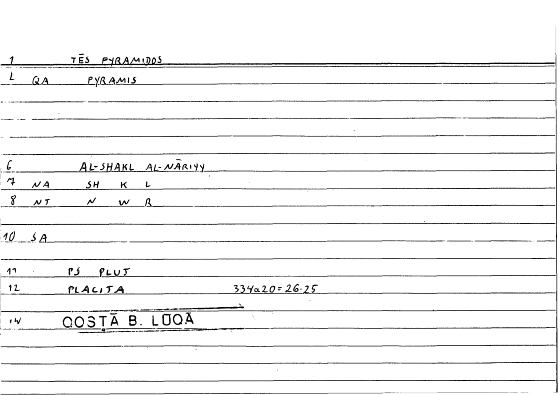 1 TĒS PYRAMIDOS
L QA PYRAMIS
6 AL-SHAKL AL-NĀRIYY
7 NA SH K L
8 NT N W R
10 SA
11 PS PLUT
12 PLACITA 334a20=26-25
14 QOSṬĀ B. LŪQĀ